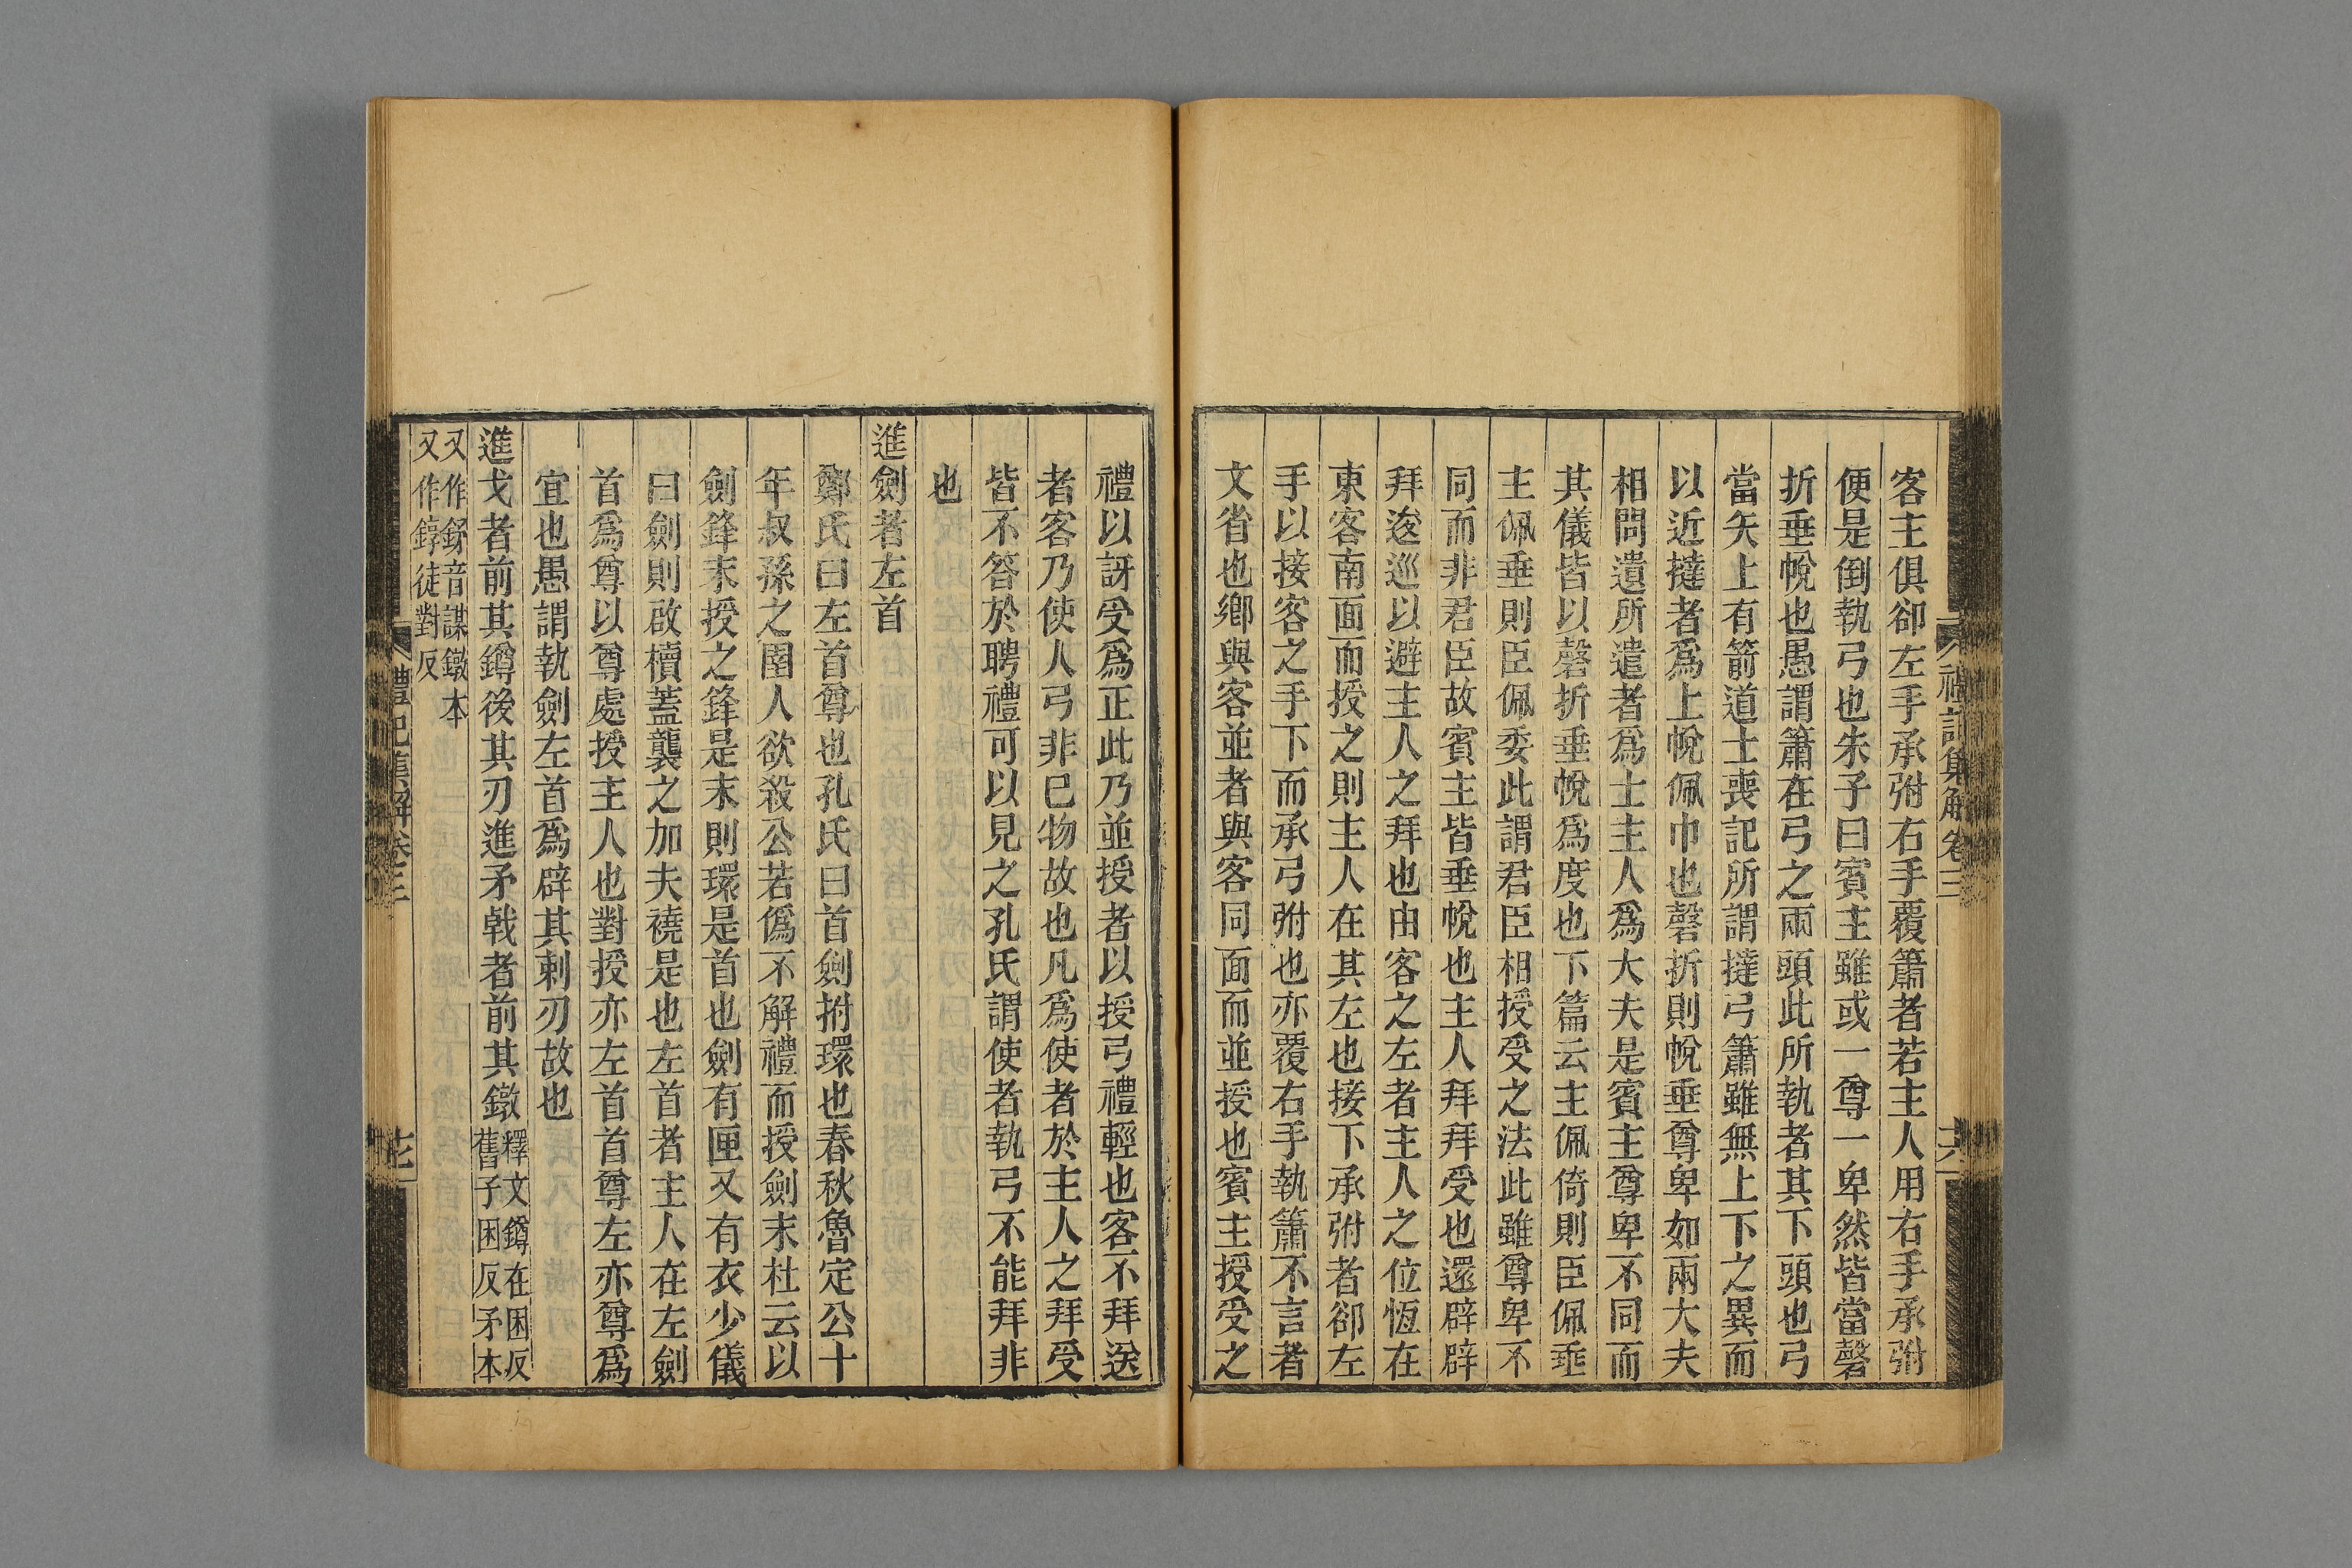 禮記集解卷三
客主俱卻左手承弣右手覆簫者若主人用右手承弣
便是倒執弓也朱子曰賓主雖或一尊一卑然皆當磬
折垂帨也愚謂簫在弓之兩頭此所執者其下頭也弓
當矢上有箭道士喪記所謂撻弓簫雖無上下之異而
以近撻者爲上帨佩巾也磬折則帨垂尊卑如兩大夫
相問遺所遣者爲士主人爲大夫是賓主尊卑不同而
其儀皆以磬折垂帨爲度也下篇云主佩倚則臣佩垂
主佩垂則臣佩委此謂君臣相授受之法此雖尊卑不
同而非君臣故賓主皆垂帨也主人拜拜受也還辟辟
拜逡巡以避主人之拜也由客之左者主人之位恆在
東客南面而授之則主人在其左也接下承弣者卻左
手以接客之手下而承弓弣也亦覆右手執簫不言者
文省也鄉與客並者與客同面而並授也賓主授受之
禮以訝受爲正此乃並授者以授弓禮輕也客不拜送
者客乃使人弓非巳物故也凡爲使者於主人之拜受
皆不答於聘禮可以見之孔氏謂使者執弓不能拜非
也
進劍者左首
鄭氏曰左首尊也孔氏曰首劍拊環也春秋魯定公十
年叔孫之圉人欲殺公若僞不解禮而授劍末杜云以
劍鋒末授之鋒是末則環是首也劍有匣又有衣少儀
曰劍則啟櫝蓋襲之加夫襓是也左首者主人在左劍
首爲尊以尊處授主人也對授亦左首首尊左亦尊爲
宜也愚謂執劍左首爲辟其刺刃故也
進戈者前其鐏後其刃進矛戟者前其鐓釋文鐏在困反
舊子困反矛本
又作鉾音謀鐓本
又作錞徒對反
禮記集解卷三